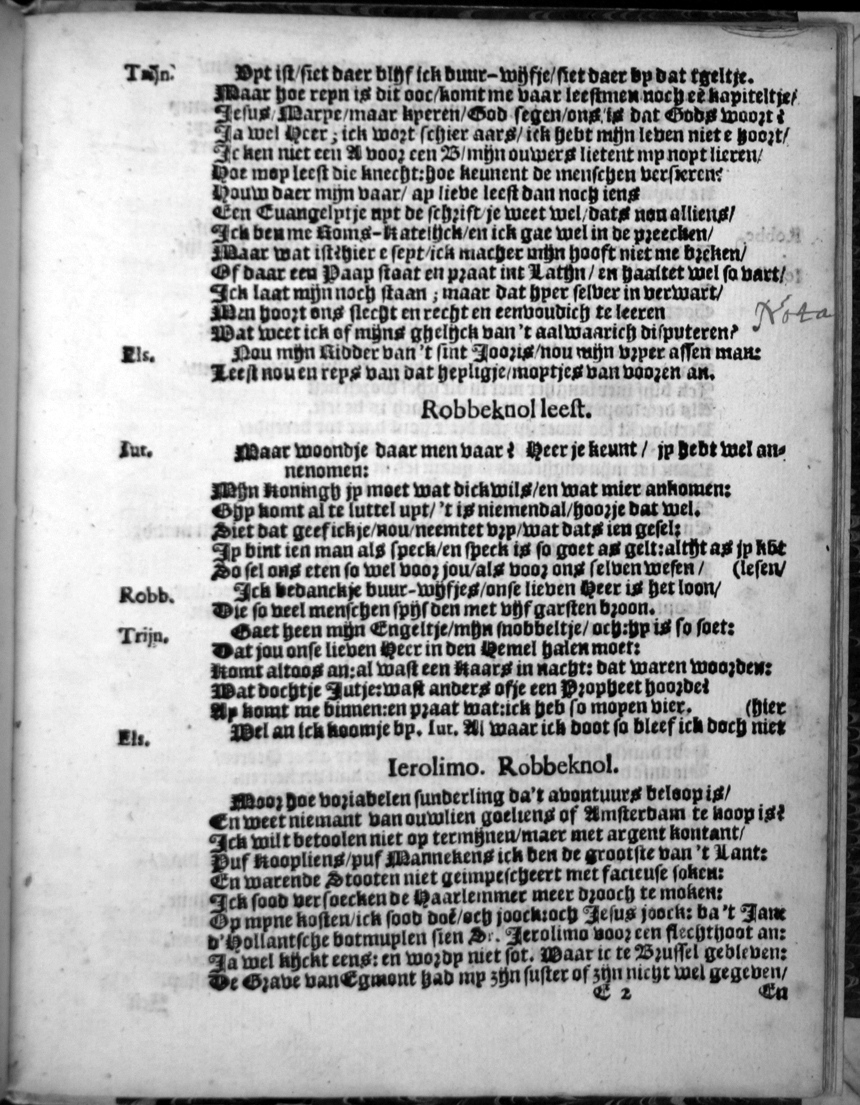 Trijn. Uyt ist/siet daer blijf ick buur-wijfje/siet daer by dat tgeltje.
Maar hoe reyn is dit ooc/komt me vaar leestmen noch eē kapiteltje/
Jesus/Marye/maar kyeren/God segen/ons/is dat Gods woort?
Ja wel Heer; ick wort schier aars/ick hebt mijn leven niet e hoort/
Ick ken niet een A voor een B/mijn ouwers lietent my noyt lieren/
Hoe moy leest die knecht: hoe keunent de menschen versieren?
Houw daer mijn vaar/ ay lieve leest dan noch iens
Een Euangelytje uyt de schrift/je weet wel/dats non alliens/
Ick ben me Roms-Katelijck/en ick gae wel in de preecken/
Maar wat ist? hier e seyt/ick macher mijn hooft niet me breken/
Of daar een Paap staat en praat int Latijn/ en haaltet wel so vart/
Ick laat mijn noch staan; maar dat hyer selver in verwart/
Men hoort ons slecht en recht en eenvoudich te leeren
Wat weet ick of mijns ghelijck van 't aalwaarich disputeren?
Nota
Els. Nou mijn Ridder van 't sint Jooris/nou mijn vryer assen man:
Leest nou en reys van dat heyligje/moytjes van vooren an.
Robbeknol leest.
Iut. Maar woondje daar men vaar? Heer je keunt/ jy hebt wel an-
nenomen:
Mijn Koningh jy moet wat dickwils/en wat mier ankomen:
Ghy komt al te luttel uyt/'t is niemendal/hoorje dat wel.
Siet dat geef ickje/nou/neemtet vry/wat dats ien gesel:
Jy bint ien man als speck/en speck is so goet as gelt: altijt as jy kōt
So sel ons eten so wel voor jou/als voor ons selven wesen/ (lesen/
Robb. Ick bedanckje buur-wijfjes/onse lieven Heer is het loon/
Die so veel menschen spijsden met vijf garsten broon.
Trijn. Gaet heen mijn Engeltje/mijn snobbeltje/och: hy is so soet:
Dat jou onse lieven Heer in den Hemel halen moet:
Komt altoos an: al wast een Kaars in nacht: dat waren woorden:
Wat dochtje Jutje: wast anders ofje een Propheet hoorde?
Ay komt me binnen: en praat wat: ick heb so mopen vier. (hier
Els. Wel an ick koomje by. Iut. Al waar ick doot so bleef ick doch niet
Ierolimo. Robbeknol.
Moor hoe voriabelen sunderling da't avontuurs beloop is/
En weet niemant van ouwlien goeliens of Amsterdam te koop is?
Ick wilt betoolen niet op termijnen/maer met argent kontant/
Puf Koopliens/puf Mannekens ick ben de grootste van 't Lant:
En warende Stooten niet geimpescheert met facieuse soken:
Ick sood versoecken de Haarlemmer meer drooch te moken:
Op myne kosten/ick sood doē/och joock: och Jesus joock: da't Jane
d'Hollantsche botmuylen sien Sr. Jerolimo voor een slechthoot an:
Ja wel kijckt eens: en wordy niet sot. Maar ic te Brussel gebleven:
De Grave van Egmont had my zijn suster of zijn nicht wel gegeven/
E 2 En